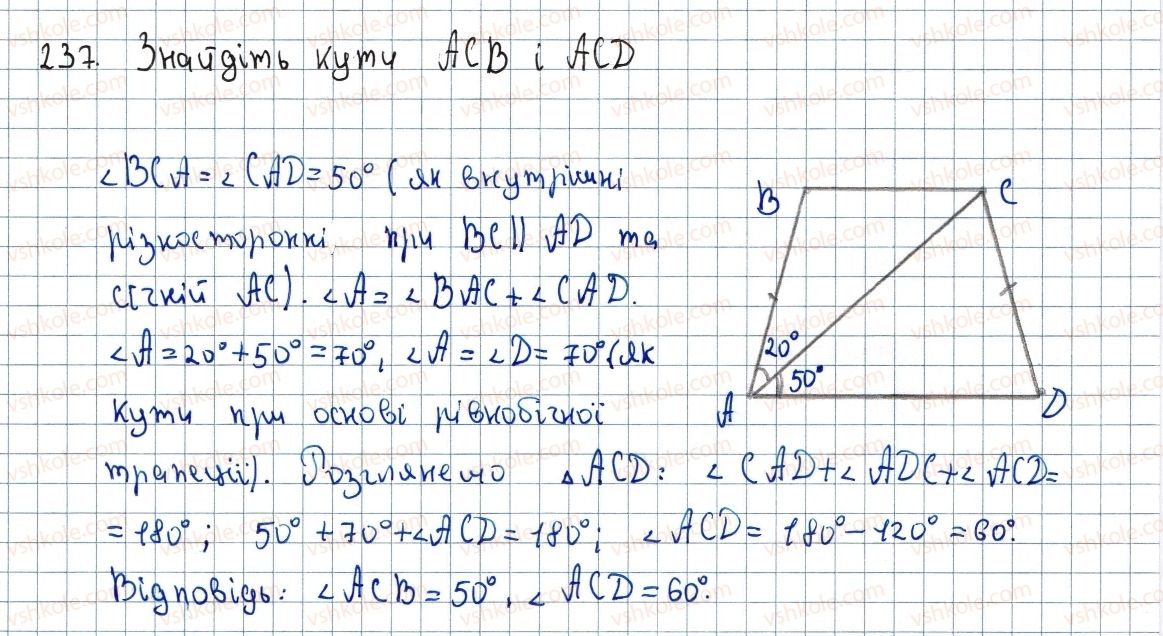 237. Знайдіть кути ACB і ACD
∠BCA = ∠CAD = 50° (як внутрішні
різносторонні при BC || AD та
січній AC). ∠A = ∠BAC + ∠CAD.
∠A = 20° + 50° = 70°, ∠A = ∠D = 70° (як
кути при основі рівнобічної
трапеції). Розглянемо △ACD: ∠CAD + ∠ADC + ∠ACD =
= 180°; 50° + 70° + ∠ACD = 180°; ∠ACD = 180° - 120° = 60°.
Відповідь: ∠ACB = 50°, ∠ACD = 60°.
B C
20°
50°
A D